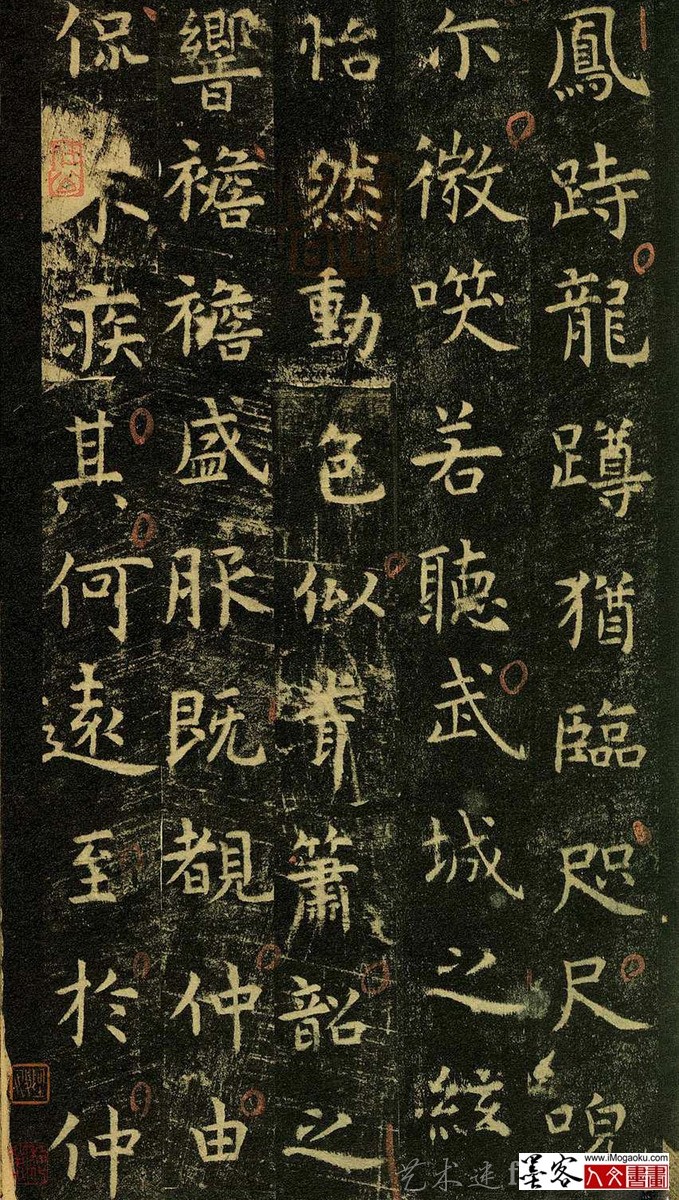 鳳跱龍蹲猶臨咫尺唲
尒微唉若聽武城之絃
怡然動色似聞簫韶之
響襜襜盛服既覩仲由
侃尒疾其何遠至於仲
墨客
www.iMogaoku.com
人文書畫
艺术迷